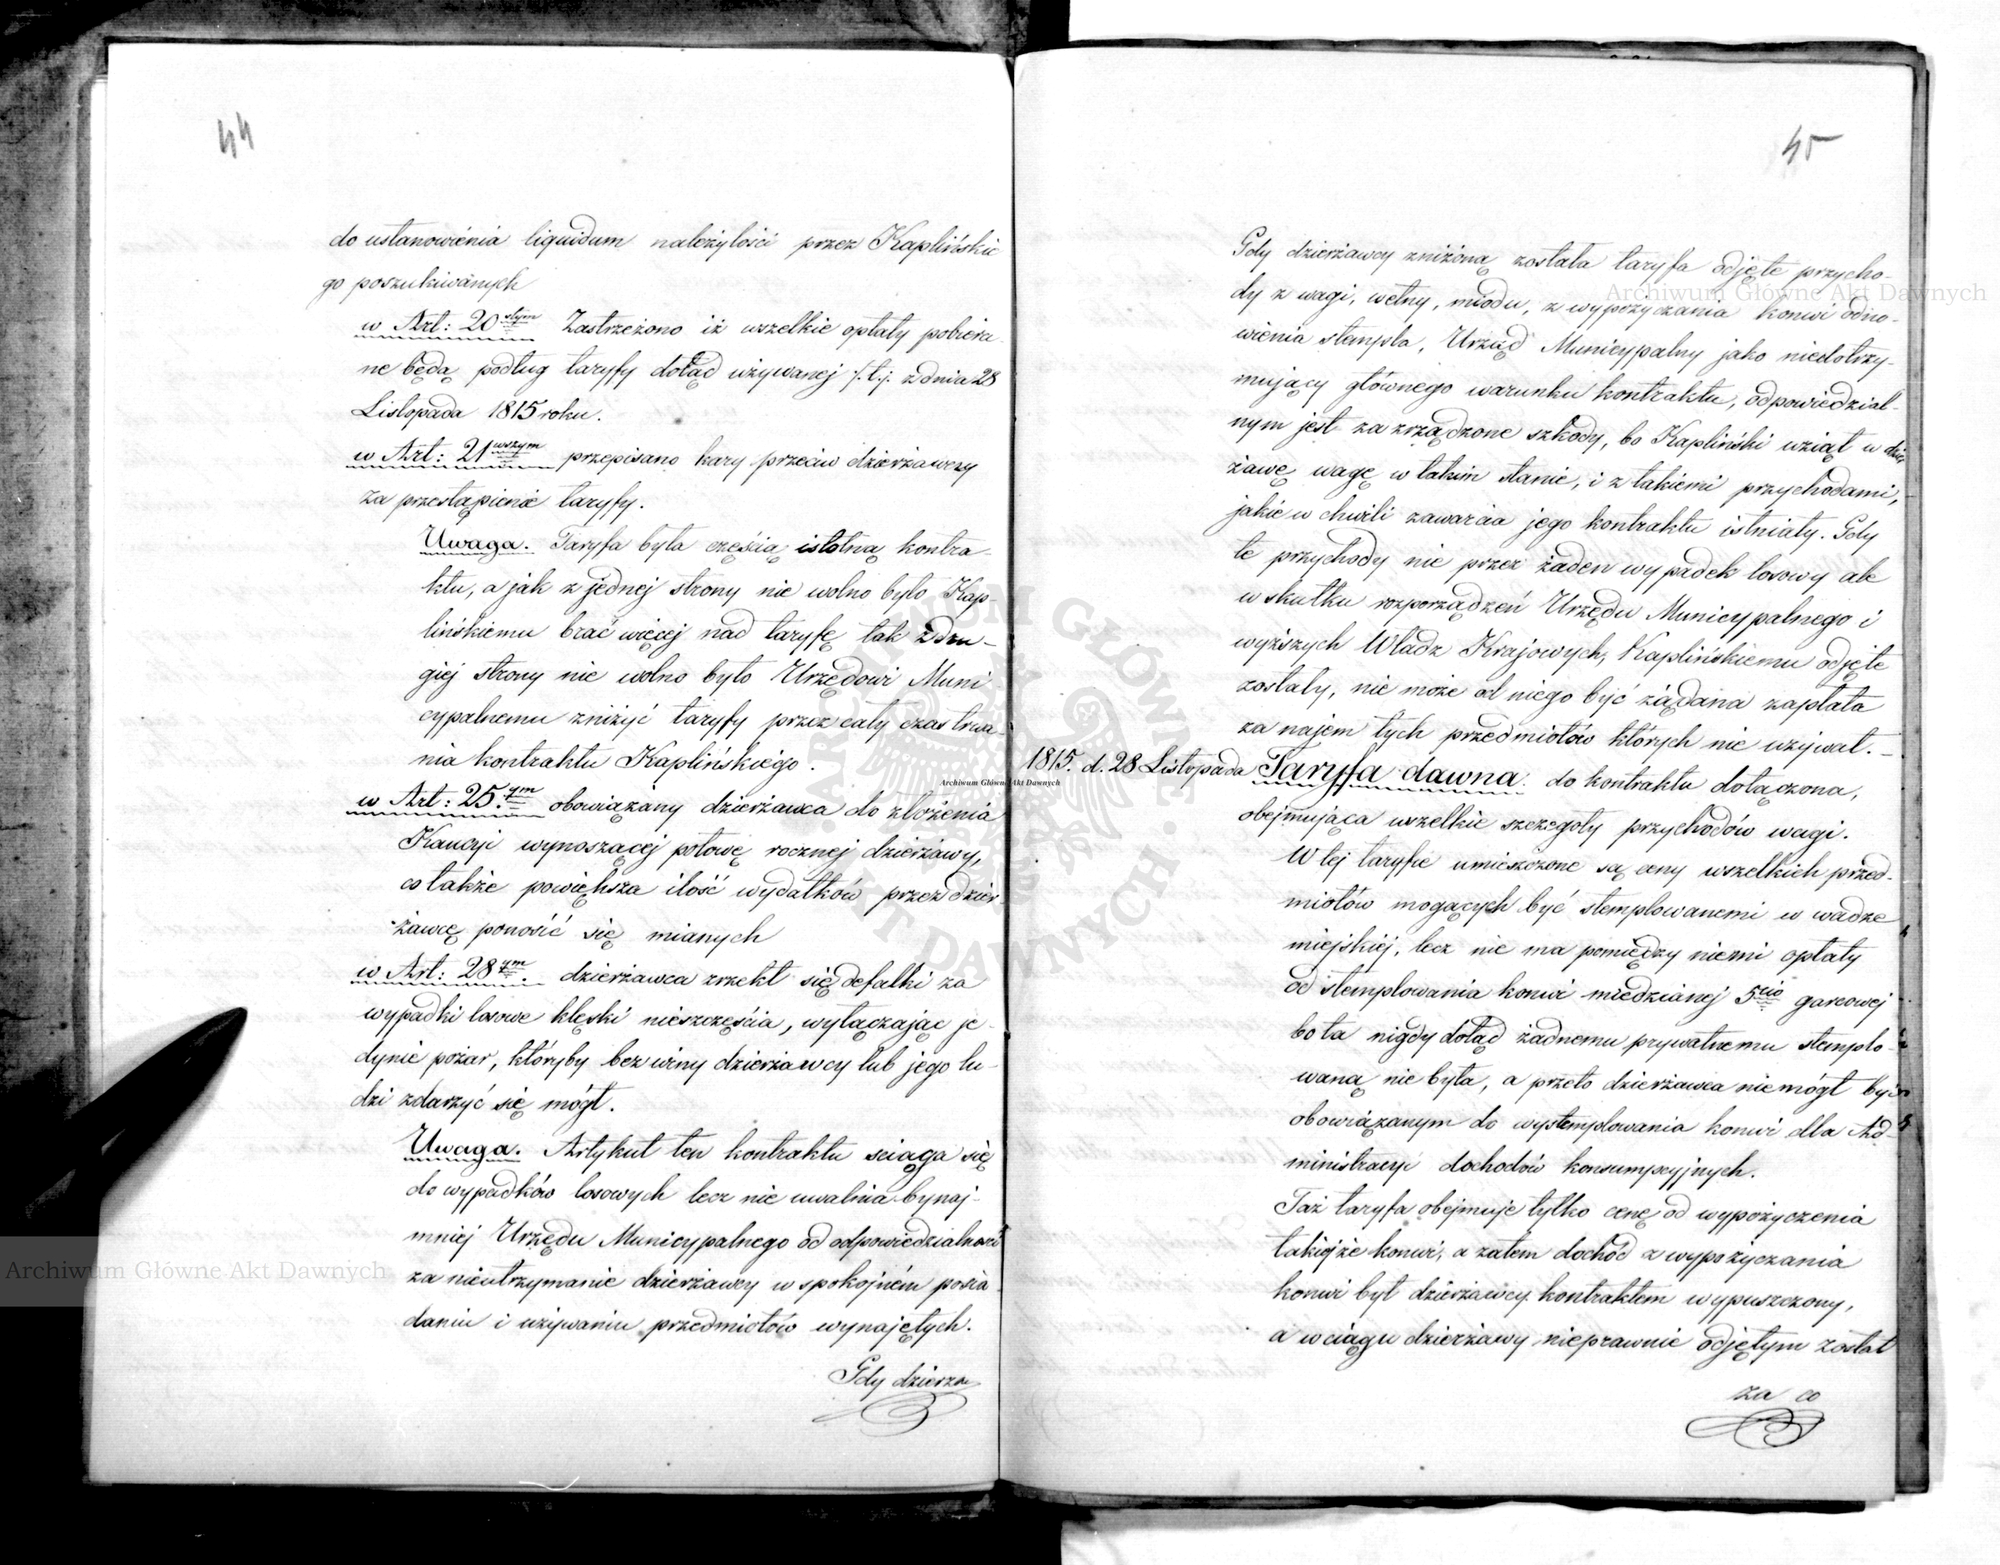 44
do ustanowienia liquidum należytości przez Kaplińskie
go poszukiwanych
w Art: 20stym Zastrzeżono iż wszelkie opłaty pobiera
ne będą podług taryfy dotąd używanej /:t.j: z dnia 28
Listopada 1815 roku.
w Art: 21wszym przepisano kary przeciw dzierżawcy
za przestąpienie taryfy.
Uwaga. Taryfa była częścią istotną kontra
ktu, a jak z jednej strony nie wolno było Kap-
lińskiemu brać więcej nad taryfę tak z dru-
giej strony nie wolno było Urzędowi Muni
cypalnemu zniżyć taryfy przez cały czas trwa
nia kontraktu Kaplińskiego.
w Art: 25.ym obowiązany dzierżawca do złożenia
Kaucyi wynoszącej połowę rocznej dzierżawy,
co także powiększa ilość wydatków przez dzier
żawcę ponosić się mianych
w Art: 28ym. dzierżawca zrzekł się defalki za
wypadki losowe klęski nieszczęścia, wyłączając je
dynie pożar, któryby bez winy dzierżawcy lub jego lu-
dzi zdarzyć się mógł.
Uwaga. Artykuł ten kontraktu sciąga się
do wypadków losowych lecz nie uwalnia bynaj-
mniej Urzędu Municypalnego od odpowiedzialności
za nieutrzymanie dzierżawcy w spokojném posia
daniu i używaniu przedmiotów wynajętych.
Gdy dzierża
45
Gdy dzierżawcy zniżóną została taryfa odjęte przycho-
dy z wagi, wełny, miodu, z wypożyczania konwi odno-
wienia stempla, Urząd Municypalny jako niedotrzy-
mujący głównego warunku kontraktu, odpowiedzial-
nym jest za zrządzone szkody, bo Kapliński wziął w dzier
żawę wagę w takim stanie, i z takiemi przychodami,
jakie w chwili zawarcia jego kontraktu istniały. Gdy
te przychody nie przez żaden wypadek losowy ale
w skutku rozporządzeń Urzędu Municypalnego i
wyższych Władz Krajowych, Kaplińskiemu odjęte
zostały, nie może od niego być żądana zapłata
za najem tych przedmiotów których nie używał. -
1815. d. 28 Listopada Taryfa dawna. do kontraktu dołączona,
obejmująca wszelkie szczegoły przychodów wagi.
W tej taryfie umieszczone są ceny wszelkich przed-
miotów mogących być stemplowanemi w wadze
miejskiéj, lecz nie ma pomiędzy niemi opłaty
od stemplowania konwi miedzianej 5cio garcowej
bo ta nigdy dotąd żadnemu prywatnemu stemplo-
waną nie była, a przeto dzierżawca nie mógł być
obowiązanym do wystemplowania konwi dla Ad-
ministracyi dochodów konsumpcyjnych.
Taż taryfa obejmuje tylko cenę od wypożyczenia
takiejże konwi, a zatem dochód z wypożyczania
konwi był dzierżawcy kontraktem wypuszczony,
a w ciągu dzierżawy nieprawnie odjętym został
za co
Archiwum Główne Akt Dawnych
Archiwum Główne Akt Dawnych
Archiwum Główne Akt Dawnych
ARCHIWUM GŁÓWNE AKT DAWNYCH